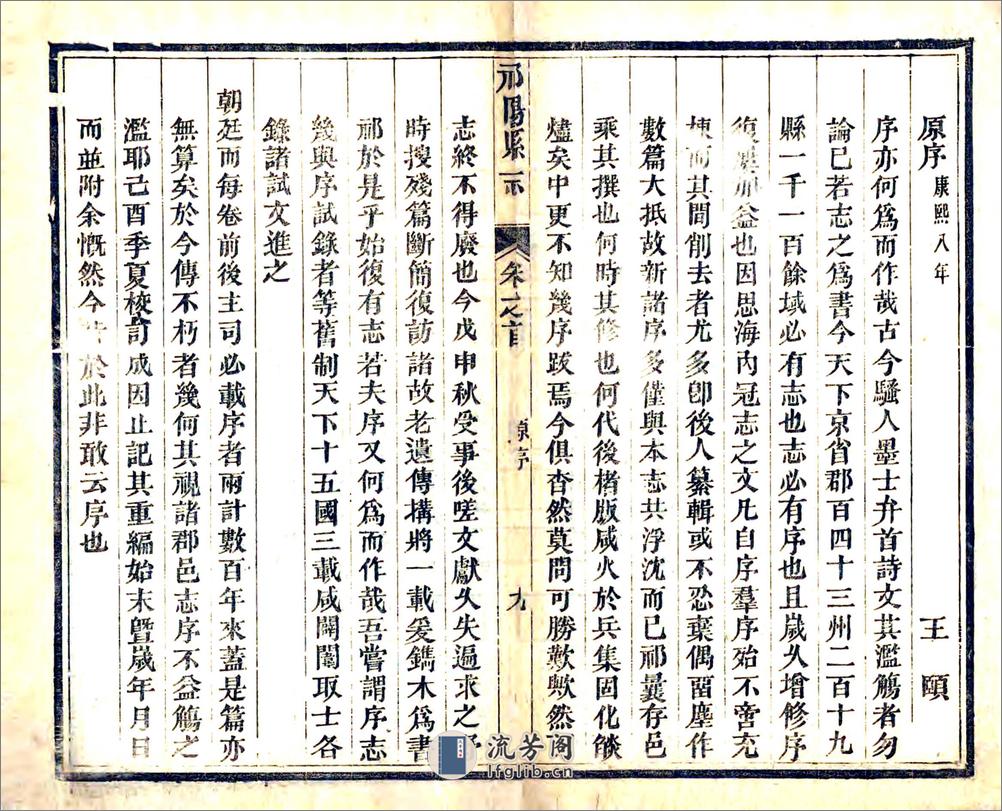 原序 康熙八年 王頤
序亦何為而作哉古今騷人墨士弁首詩文其濫觴者勿
論已若志之為書今天下京省郡百四十三州二百十九
縣一千一百餘域必有志也志必有序也且歲久增修序
復 加益也因思海內冠志之文凡自序羣序殆不啻充
棟而其間削去者尤多卽後人纂輯或不忍棄偶畱塵作
數篇大抵故新諸序多僅與本志共浮沈而已祁曩存邑
乘其撰也何時其修也何代後楮版咸火於兵集固化燄
燼矣中更不知幾序跋焉今俱杳然莫問可勝歎歟然
祁陽縣志 卷之首 原序 九
志終不得廢也今戊申秋受事後嗟文獻久失遍求之
時搜殘篇斷簡復訪諸故老遺傳搆將一載爰鐫木為書
祁於是乎始復有志若夫序又何為而作哉吾嘗謂序志
幾與序試錄者等舊制天下十五國三載咸闢闈取士各
錄諸試文進之
朝廷而每卷前後主司必載序者兩計數百年來蓋是篇亦
無算矣於今傳不朽者幾何其視諸郡邑志序不益觴之
濫耶己酉季夏校訂成因止記其重編始末曁歲年月日
而並附余慨然今 於此非敢云序也
流芳阁
lfglib.cn